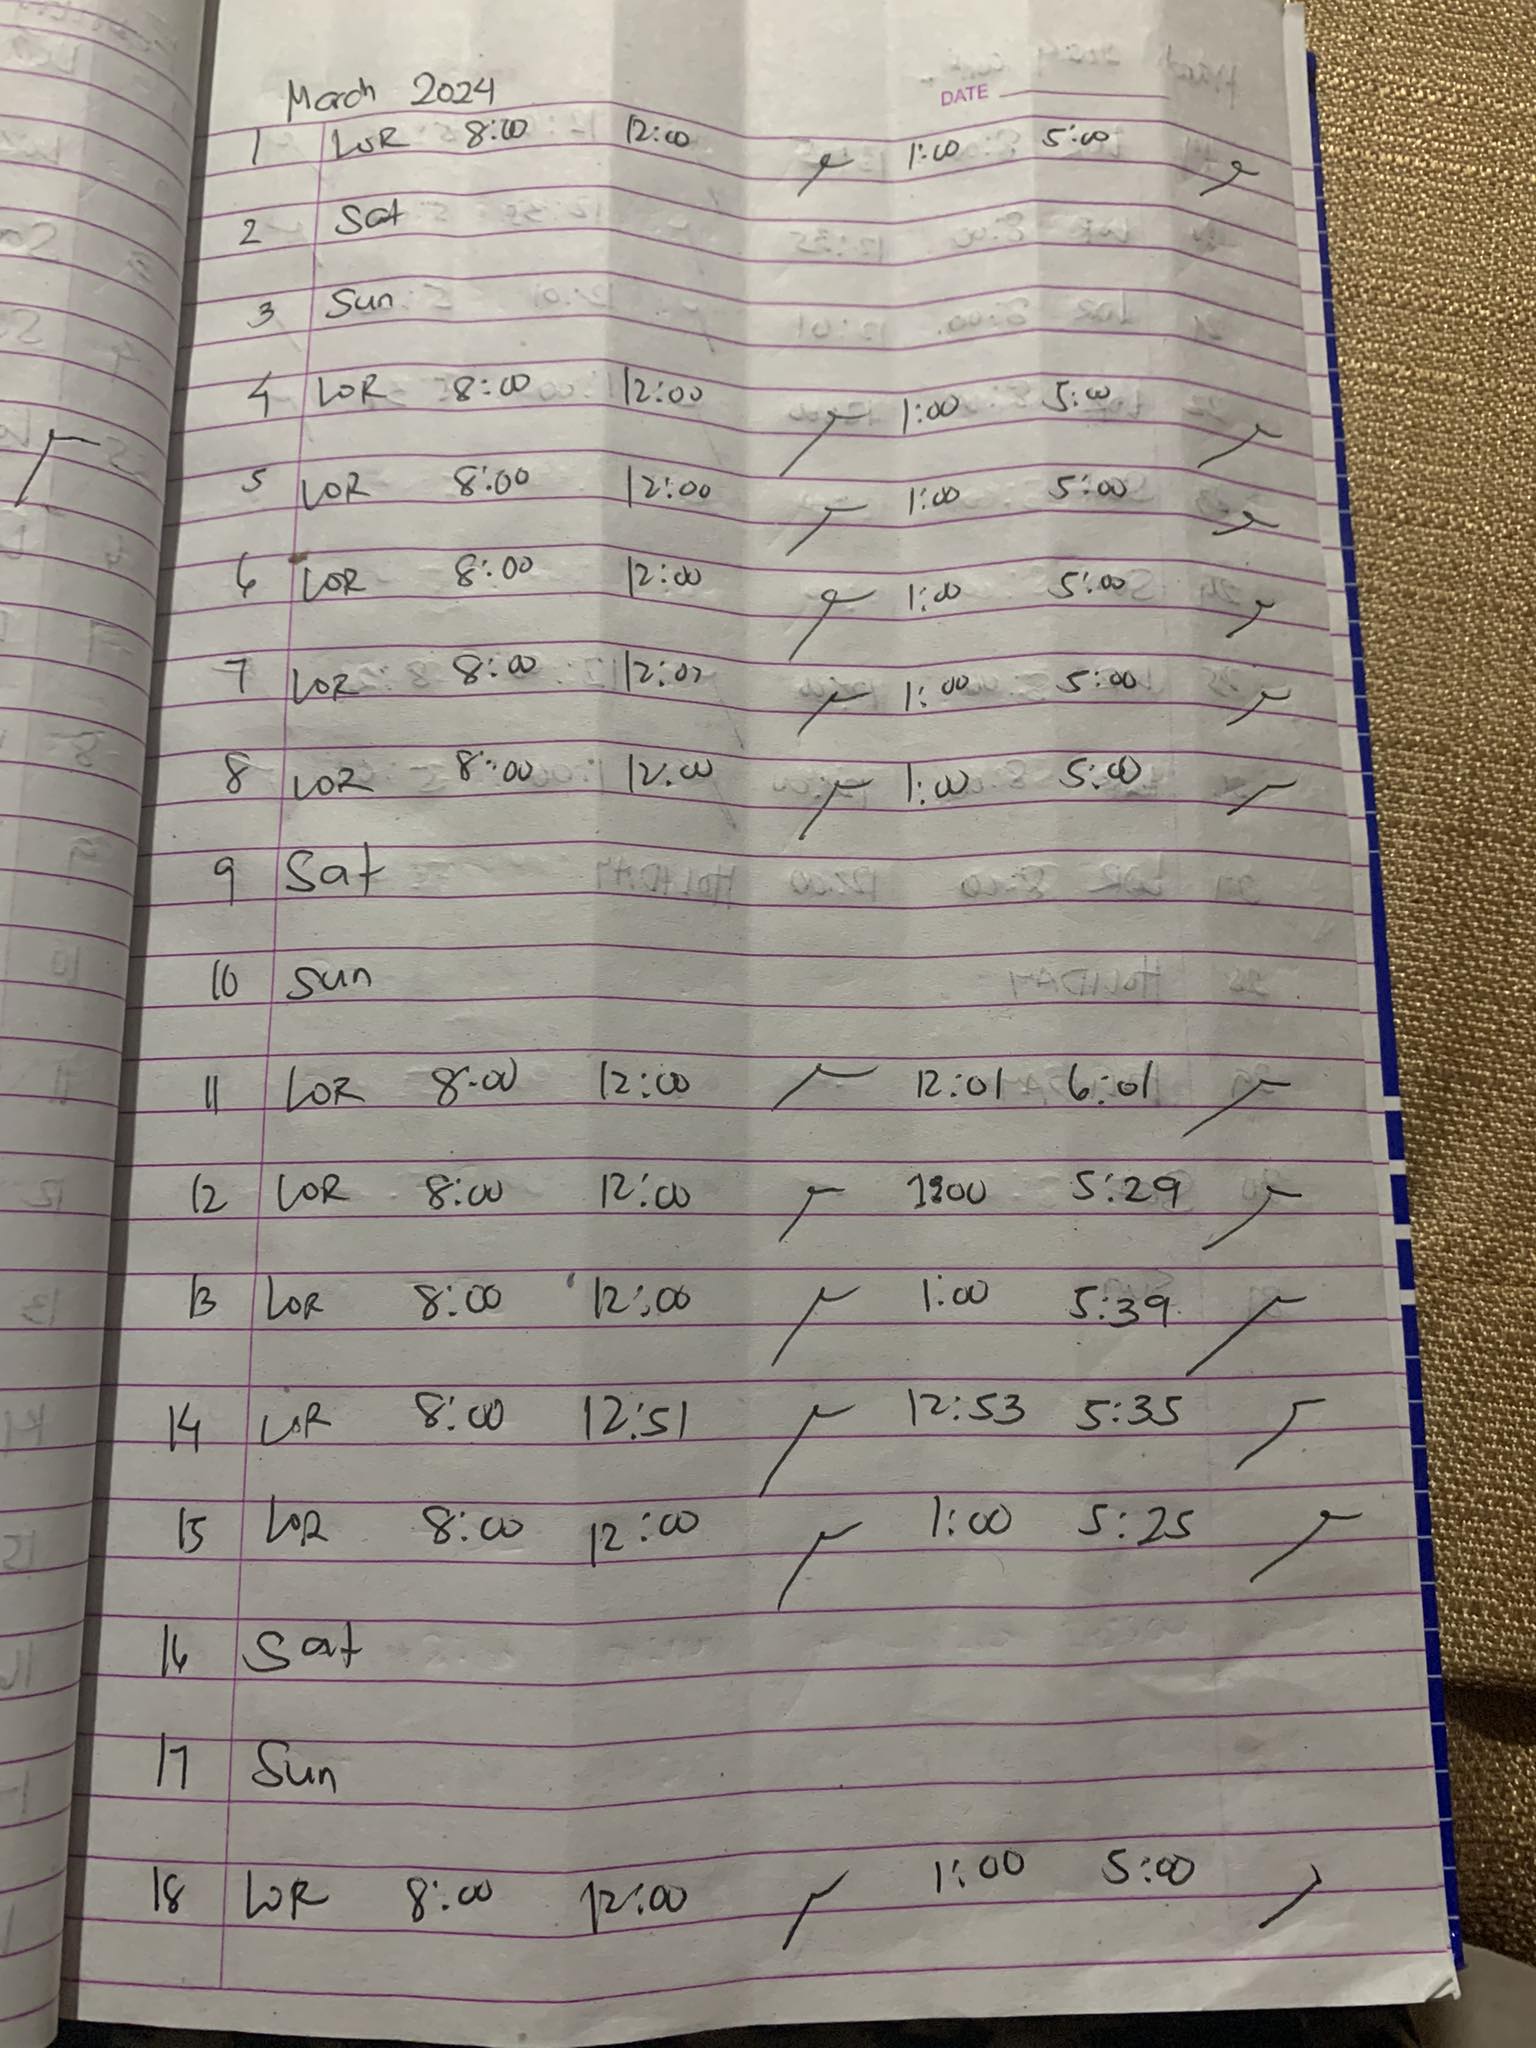 March 2024
DATE
1 LOR 8:00 12:00 1:00 5:00
2 Sat
3 Sun
4 LOR 8:00 12:00 1:00 5:00
5 LOR 8:00 12:00 1:00 5:00
6 LOR 8:00 12:00 1:00 5:00
7 LOR 8:00 12:07 1:00 5:00
8 LOR 8:00 12:00 1:00 5:00
9 Sat
10 Sun
11 LOR 8:00 12:00 12:01 6:01
12 LOR 8:00 12:00 5:29
13 LOR 8:00 12:00 1:00 5:39
14 LOR 8:00 12:51 12:53 5:35
15 LOR 8:00 12:00 1:00 5:25
16 Sat
17 Sun
18 LOR 8:00 12:00 1:00 5:00